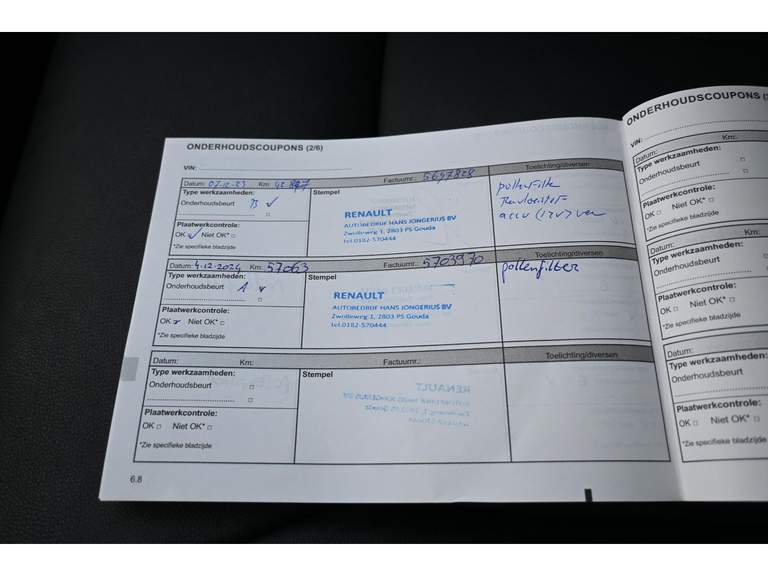 ONDERHOUDSCOUPONS (2/6)
VIN:
Datum: 07-12-23 Km:
Factuurnr.: 5697828
Toelichting/diversen
Type werkzaamheden:
Stempel
Onderhoudsbeurt B ✓
pollenfilter
RENAULT
AUTOBEDRIJF HANS JONGERIUS BV
Zwolleweg 1, 2803 PS Gouda
tel.0182-570444
accu (12V)
Plaatwerkcontrole:
OK ✓ Niet OK* □
*Zie specifieke bladzijde
Datum: 4-12-2024 Km: 57063
Factuurnr.: 5703970
Toelichting/diversen
Type werkzaamheden:
Stempel
Onderhoudsbeurt A ✓
pollenfilter
RENAULT
AUTOBEDRIJF HANS JONGERIUS BV
Zwolleweg 1, 2803 PS Gouda
tel.0182-570444
Plaatwerkcontrole:
OK ✓ Niet OK* □
*Zie specifieke bladzijde
Datum: Km:
Factuurnr.:
Toelichting/diversen
Type werkzaamheden:
Stempel
Onderhoudsbeurt □
□
Plaatwerkcontrole:
OK □ Niet OK* □
*Zie specifieke bladzijde
6.8
ONDERHOUDSCOUPONS
VIN:
Datum: Km:
Type werkzaamheden:
Onderhoudsbeurt □
□
Plaatwerkcontrole:
OK □ Niet OK* □
*Zie specifieke bladzijde
Datum: Km:
Type werkzaamheden:
Onderhoudsbeurt □
□
Plaatwerkcontrole:
OK □ Niet OK* □
*Zie specifieke bladzijde
Datum: Km:
Type werkzaamheden:
Onderhoudsbeurt □
□
Plaatwerkcontrole:
OK □ Niet OK* □
*Zie specifieke bladzijde